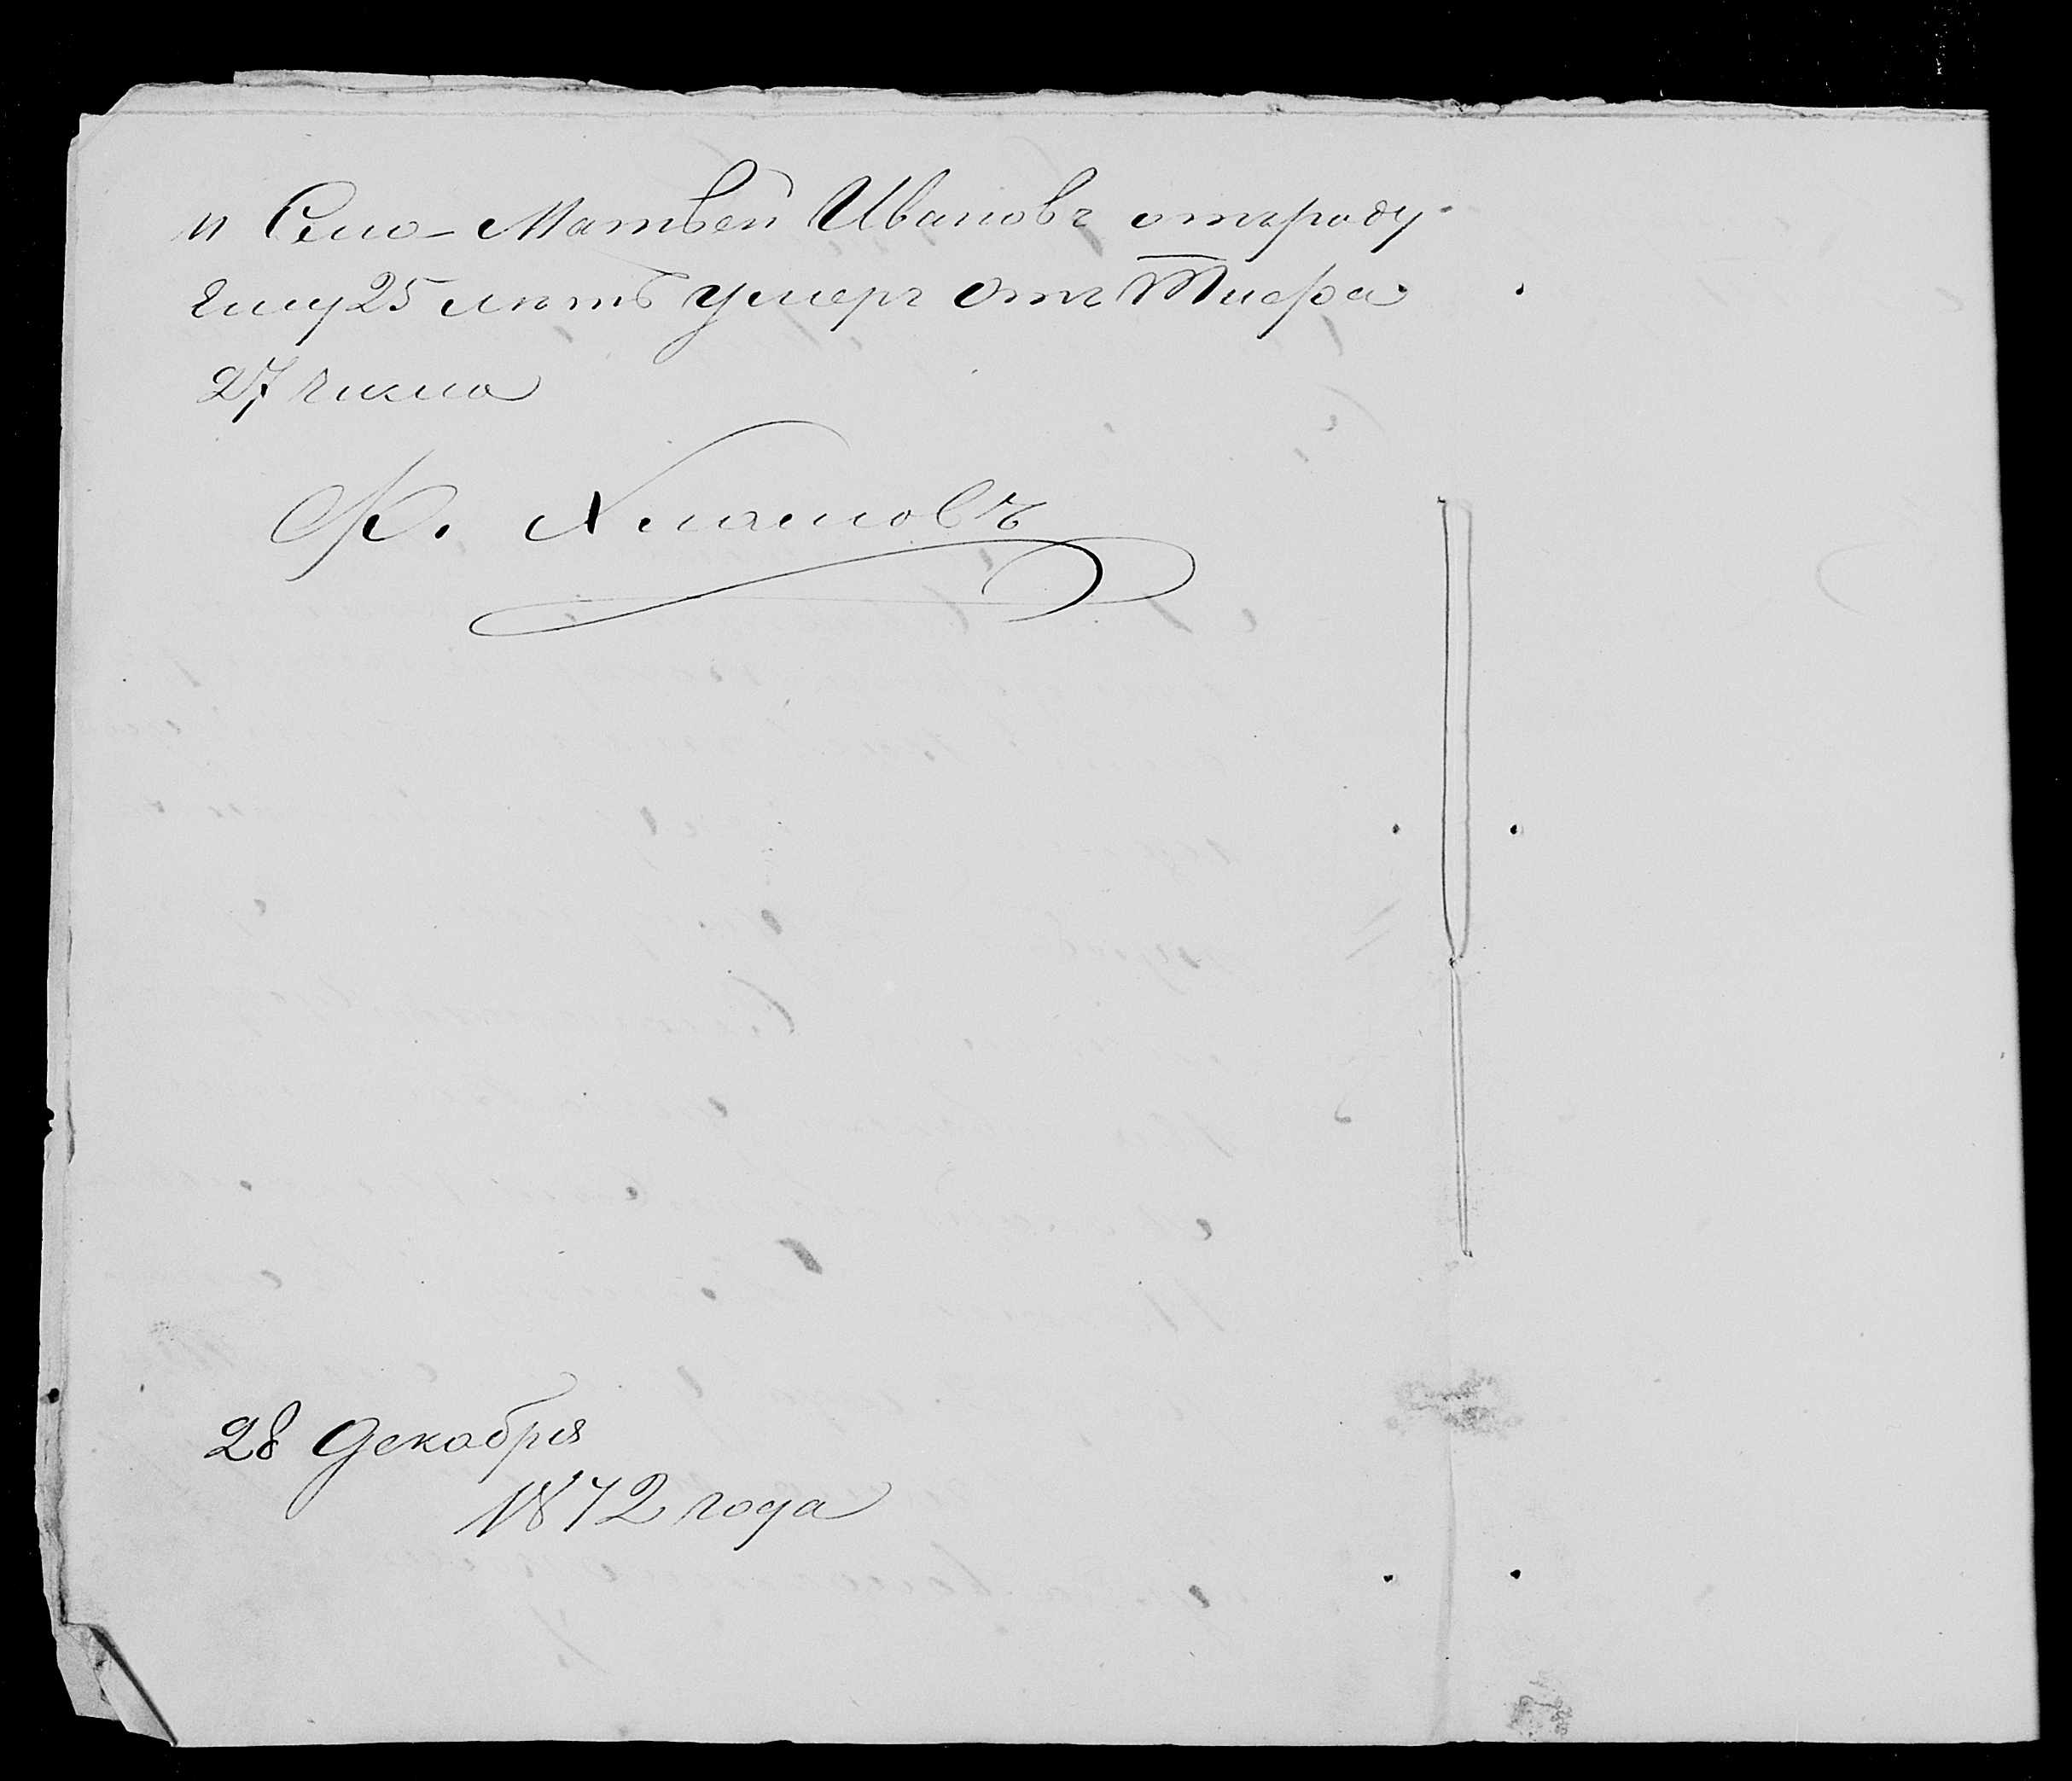 и Село Матвей Ивановъ отъроду
Ему 25 летъ умеръ Отъ Тиефа
27 числа
Ф. Хламовъ
28 Декабря
1872 года